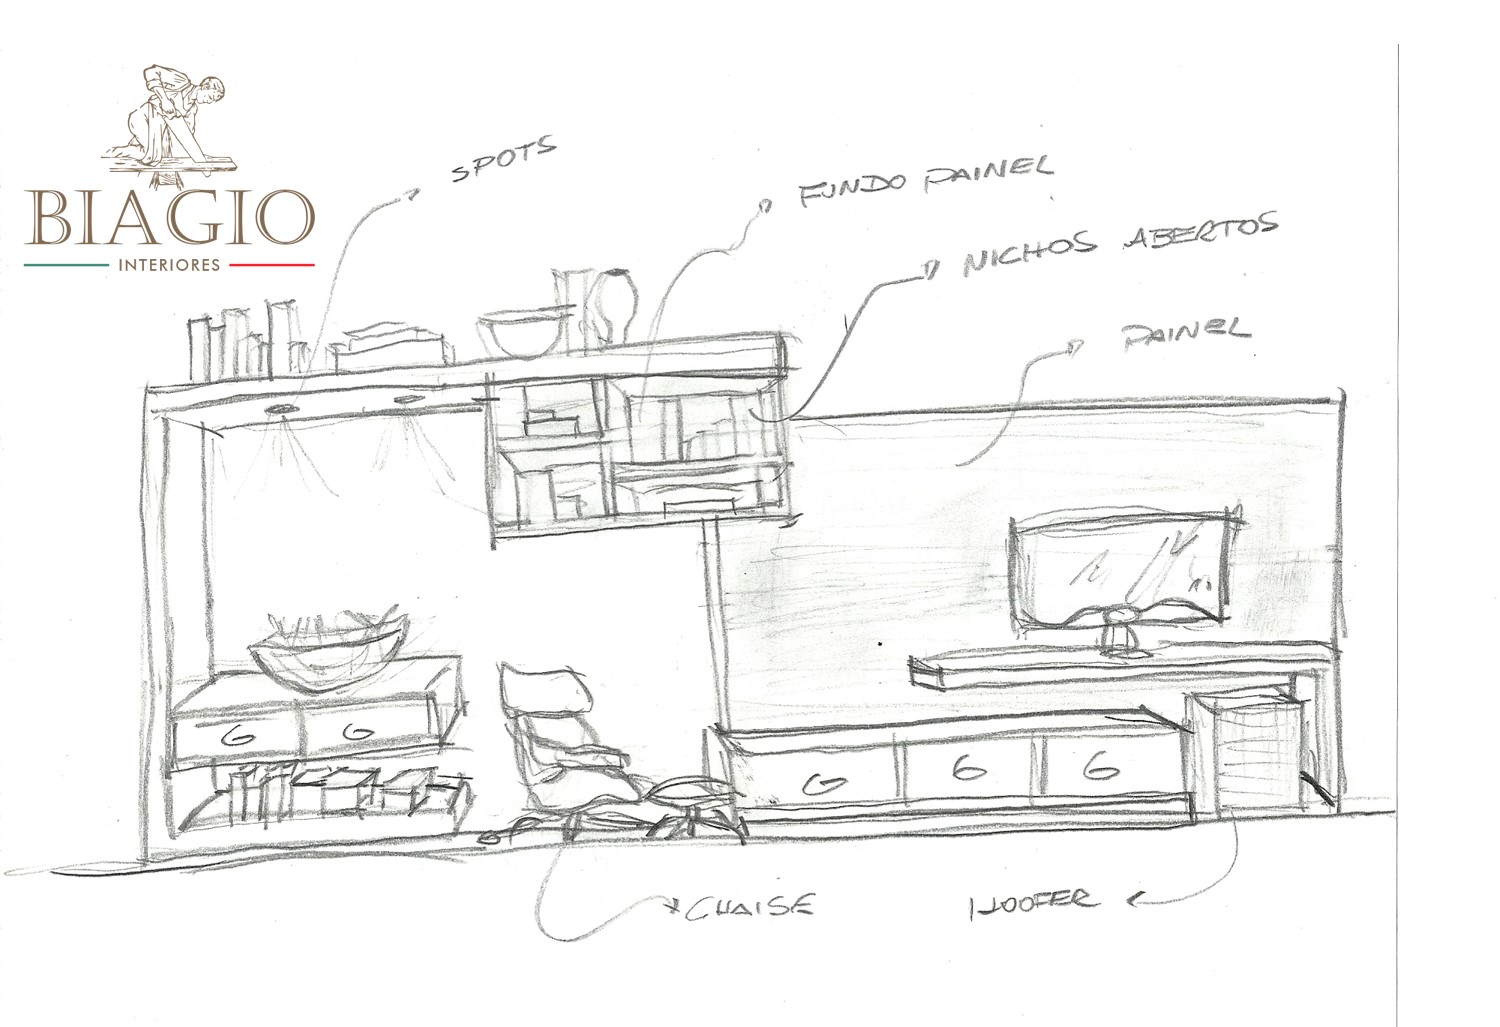 BIAGIO
INTERIORES
SPOTS
FUNDO PAINEL
NICHOS ABERTOS
PAINEL
G G
G G G
CHAISE
WOOFER